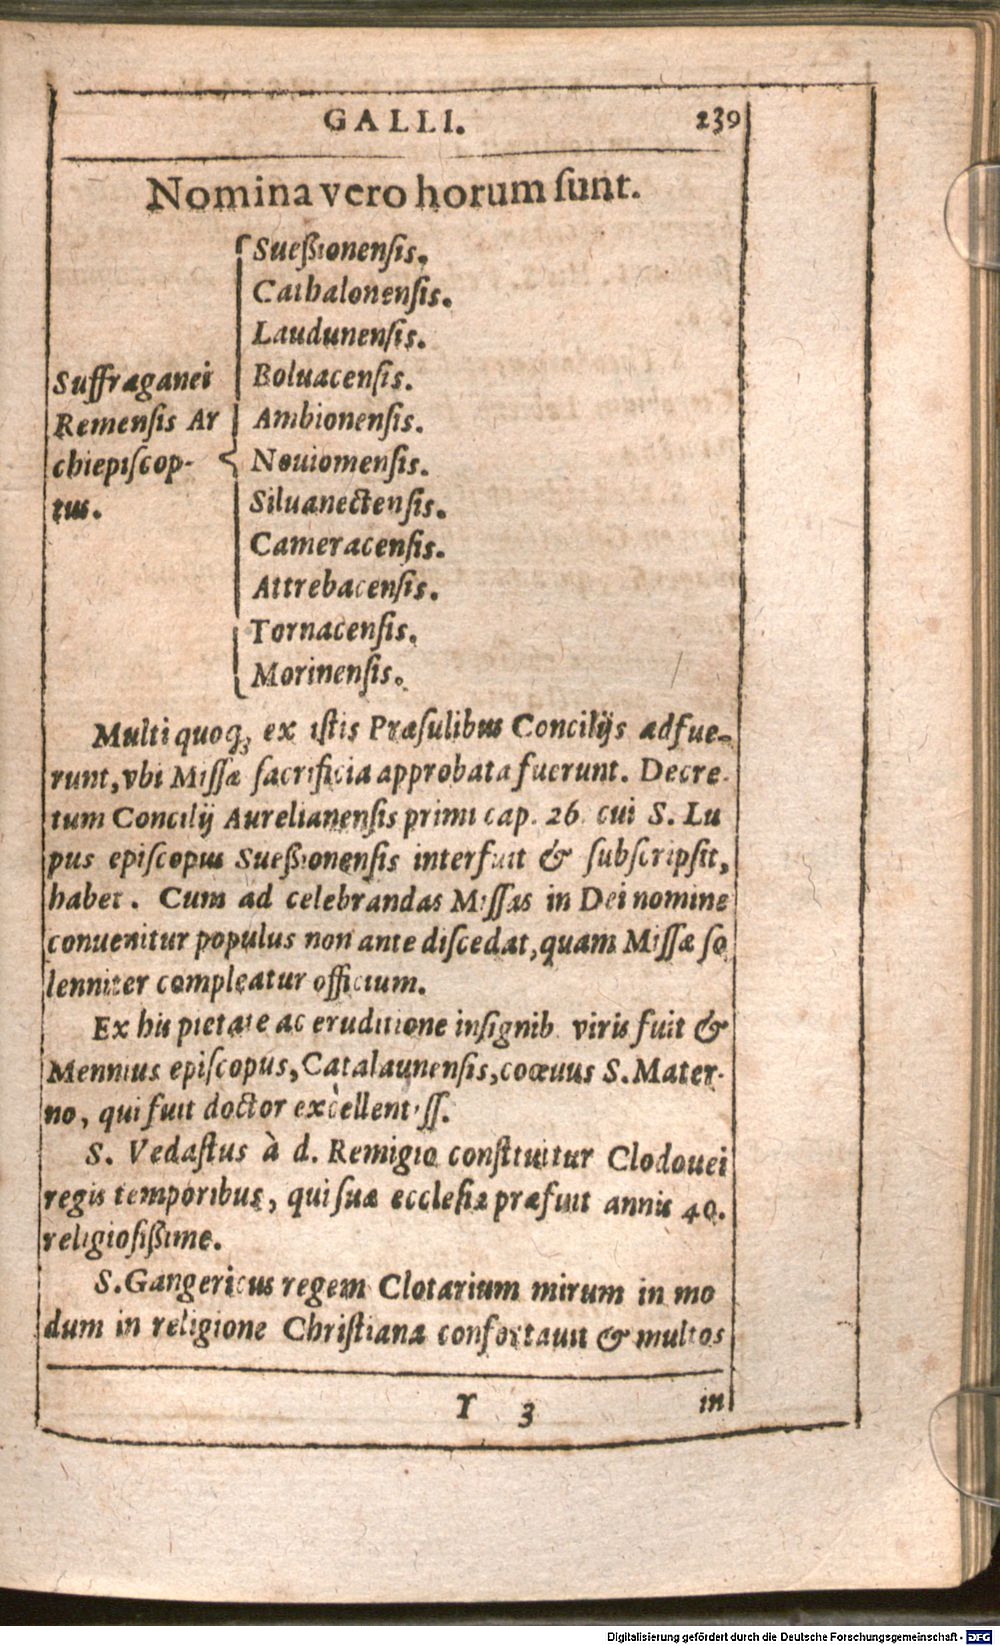 GALLI. 239
Nomina vero horum ſunt.
Suffraganei
Remensis Ar
chiepiſcop-
tus.
Sueßionenſis.
Cathalonenſis.
Laudunenſis.
Boluacenſis.
Ambionenſis.
Nouiomenſis.
Siluanectenſis.
Cameracenſis.
Attrebacenſis.
Tornacenſis.
Morinenſis.
Multi quoq; ex iſtis Præſulibus Concilijs adfue-
runt, vbi Miſſæ ſacrificia approbata fuerunt. Decre-
tum Concilij Aurelianenſis primi cap. 26. cui S. Lu
pus epiſcopus Sueßionenſis interfuit & ſubſcripſit,
habet. Cum ad celebrandas Miſſas in Dei nomine
conuenitur populus non ante diſcedat, quam Miſſæ ſo
lenniter compleatur officium.
Ex his pietate ac eruditione inſignib. viris fuit &
Mennius epiſcopus, Catalaunenſis, coæuus S. Mater-
no, qui fuit doctor excellentiſſ.
S. Vedaſtus à d. Remigio conſtituitur Clodouei
regis temporibus, qui ſuæ eccleſiæ præfuit annis 40.
religioſißime.
S. Gangericus regem Clotarium mirum in mo
dum in religione Chriſtiana confortauit & multos
Y 3 in
Digitalisierung gefördert durch die Deutsche Forschungsgemeinschaft - DFG